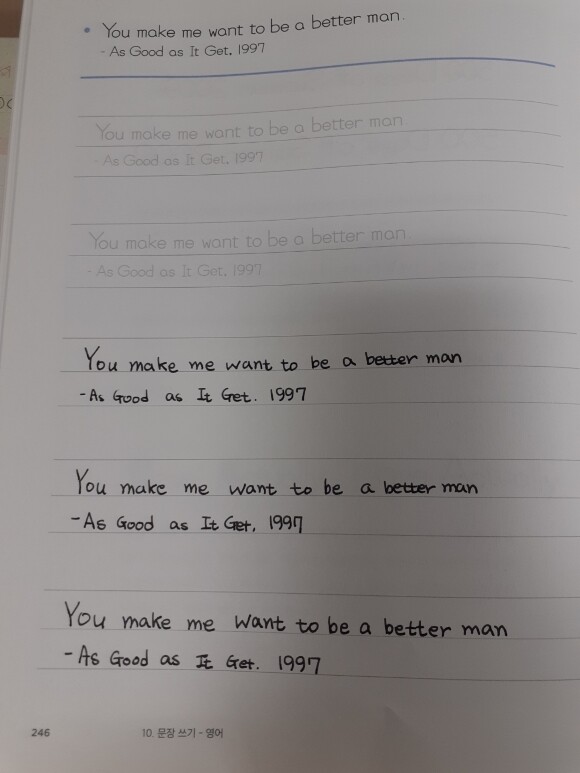 • You make me want to be a better man.
- As Good as It Get, 1997
You make me want to be a better man
- As Good as It Get, 1997
You make me want to be a better man
- As Good as It Get, 1997
You make me want to be a better man
- As Good as It Get. 1997
You make me want to be a better man
- As Good as It Get, 1997
You make me want to be a better man
- As Good as It Get. 1997
246 10. 문장 쓰기 - 영어